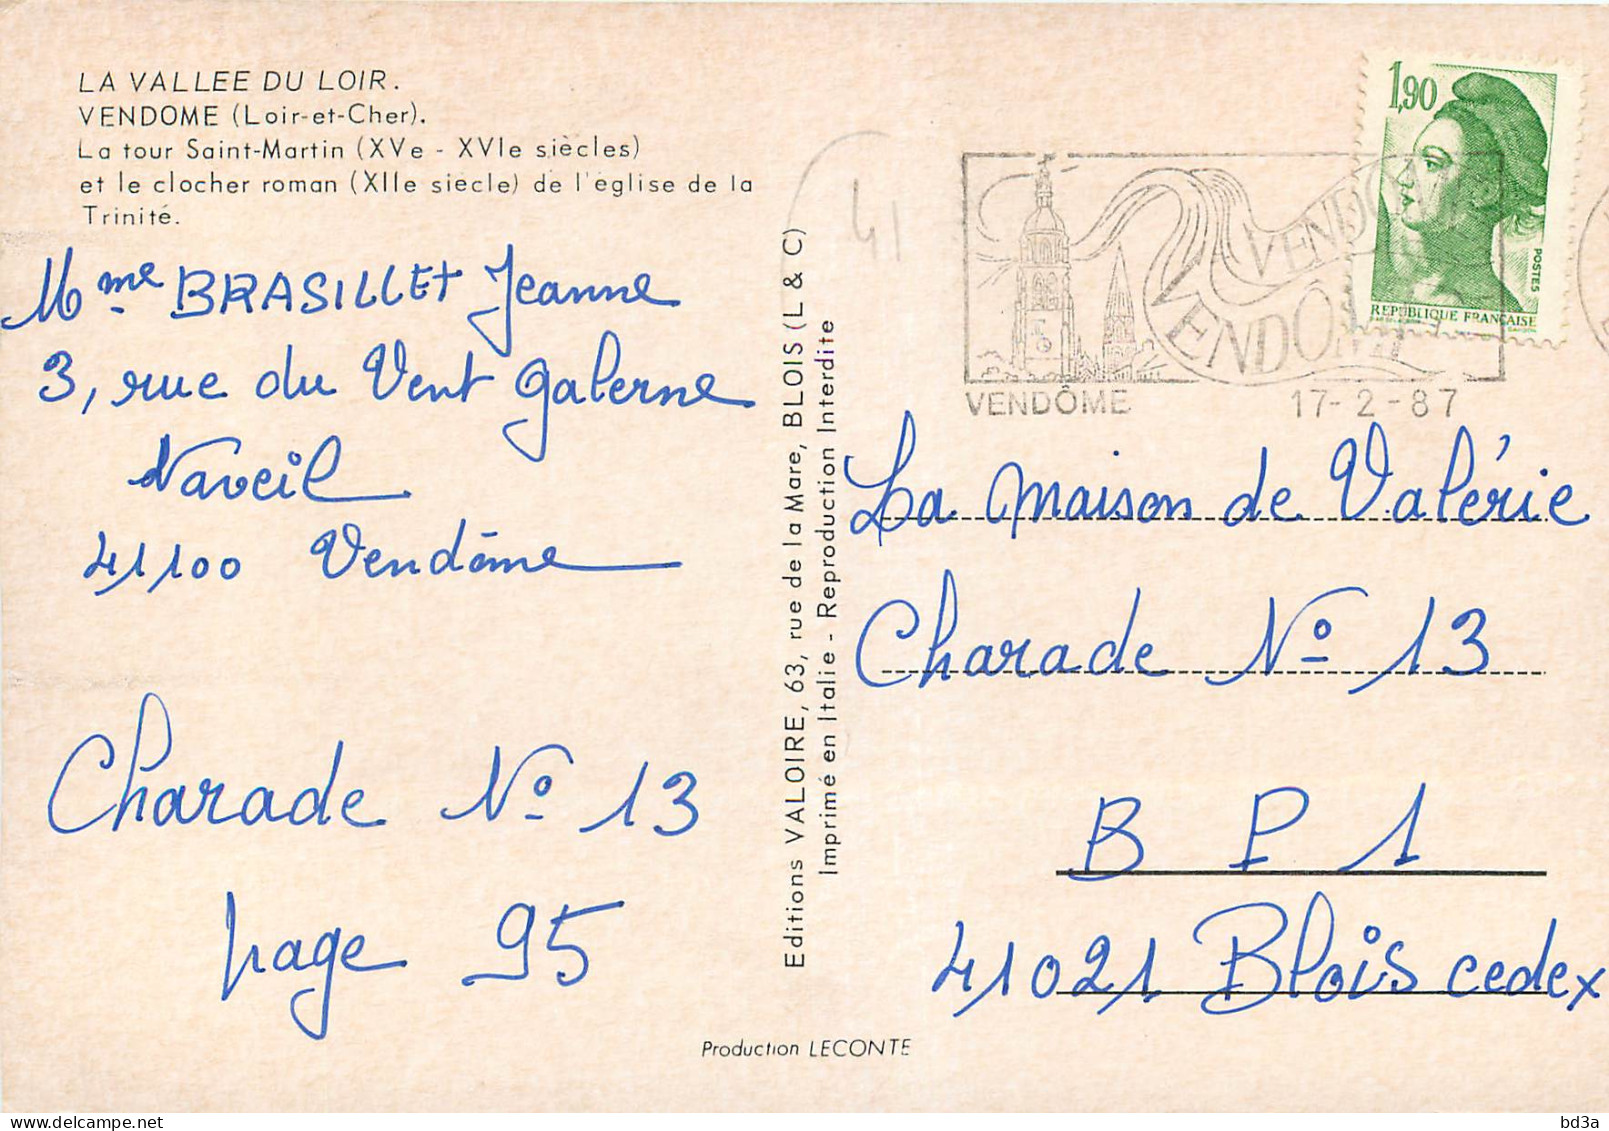 LA VALLEE DU LOIR.
VENDOME (Loir-et-Cher).
La tour Saint-Martin (XVe - XVIe siècles)
et le clocher roman (XIIe siècle) de l'église de la
Trinité.
Mme BRASILLET Jeanne
3, rue du Vent Galerne
Naveil
41100 Vendôme
Charade No 13
page 95
Editions VALOIRE, 63, rue de la Mare, BLOIS (L & C)
Imprimé en Italie - Reproduction Interdite
Production LECONTE
41
1,90
POSTES
REPUBLIQUE FRANÇAISE
VENDÔME
VENDÔME 17-2-87
La maison de Valérie
Charade No 13
B P 1
41021 Blois cedex
delcampe.net
bd3a